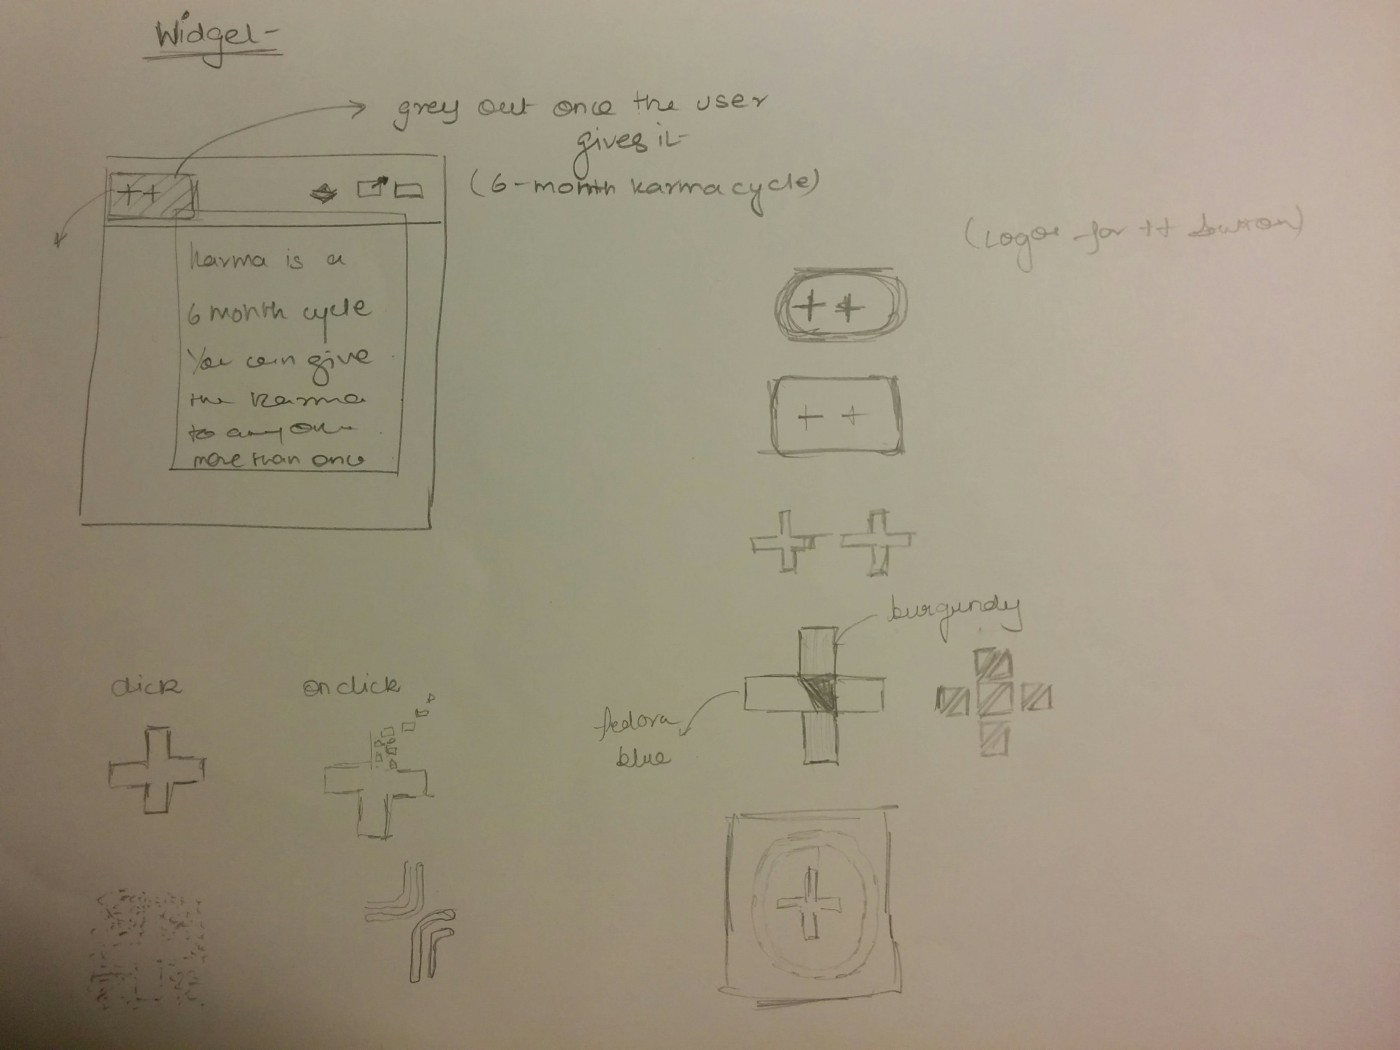 Widget-
grey out once the user
gives it
(6-month karma cycle)
++
Karma is a
6 month cycle
You can give
the karma
to anyone
more than once
(Logos for ++ button)
++
++
burgundy
fedora
blue
click
onclick